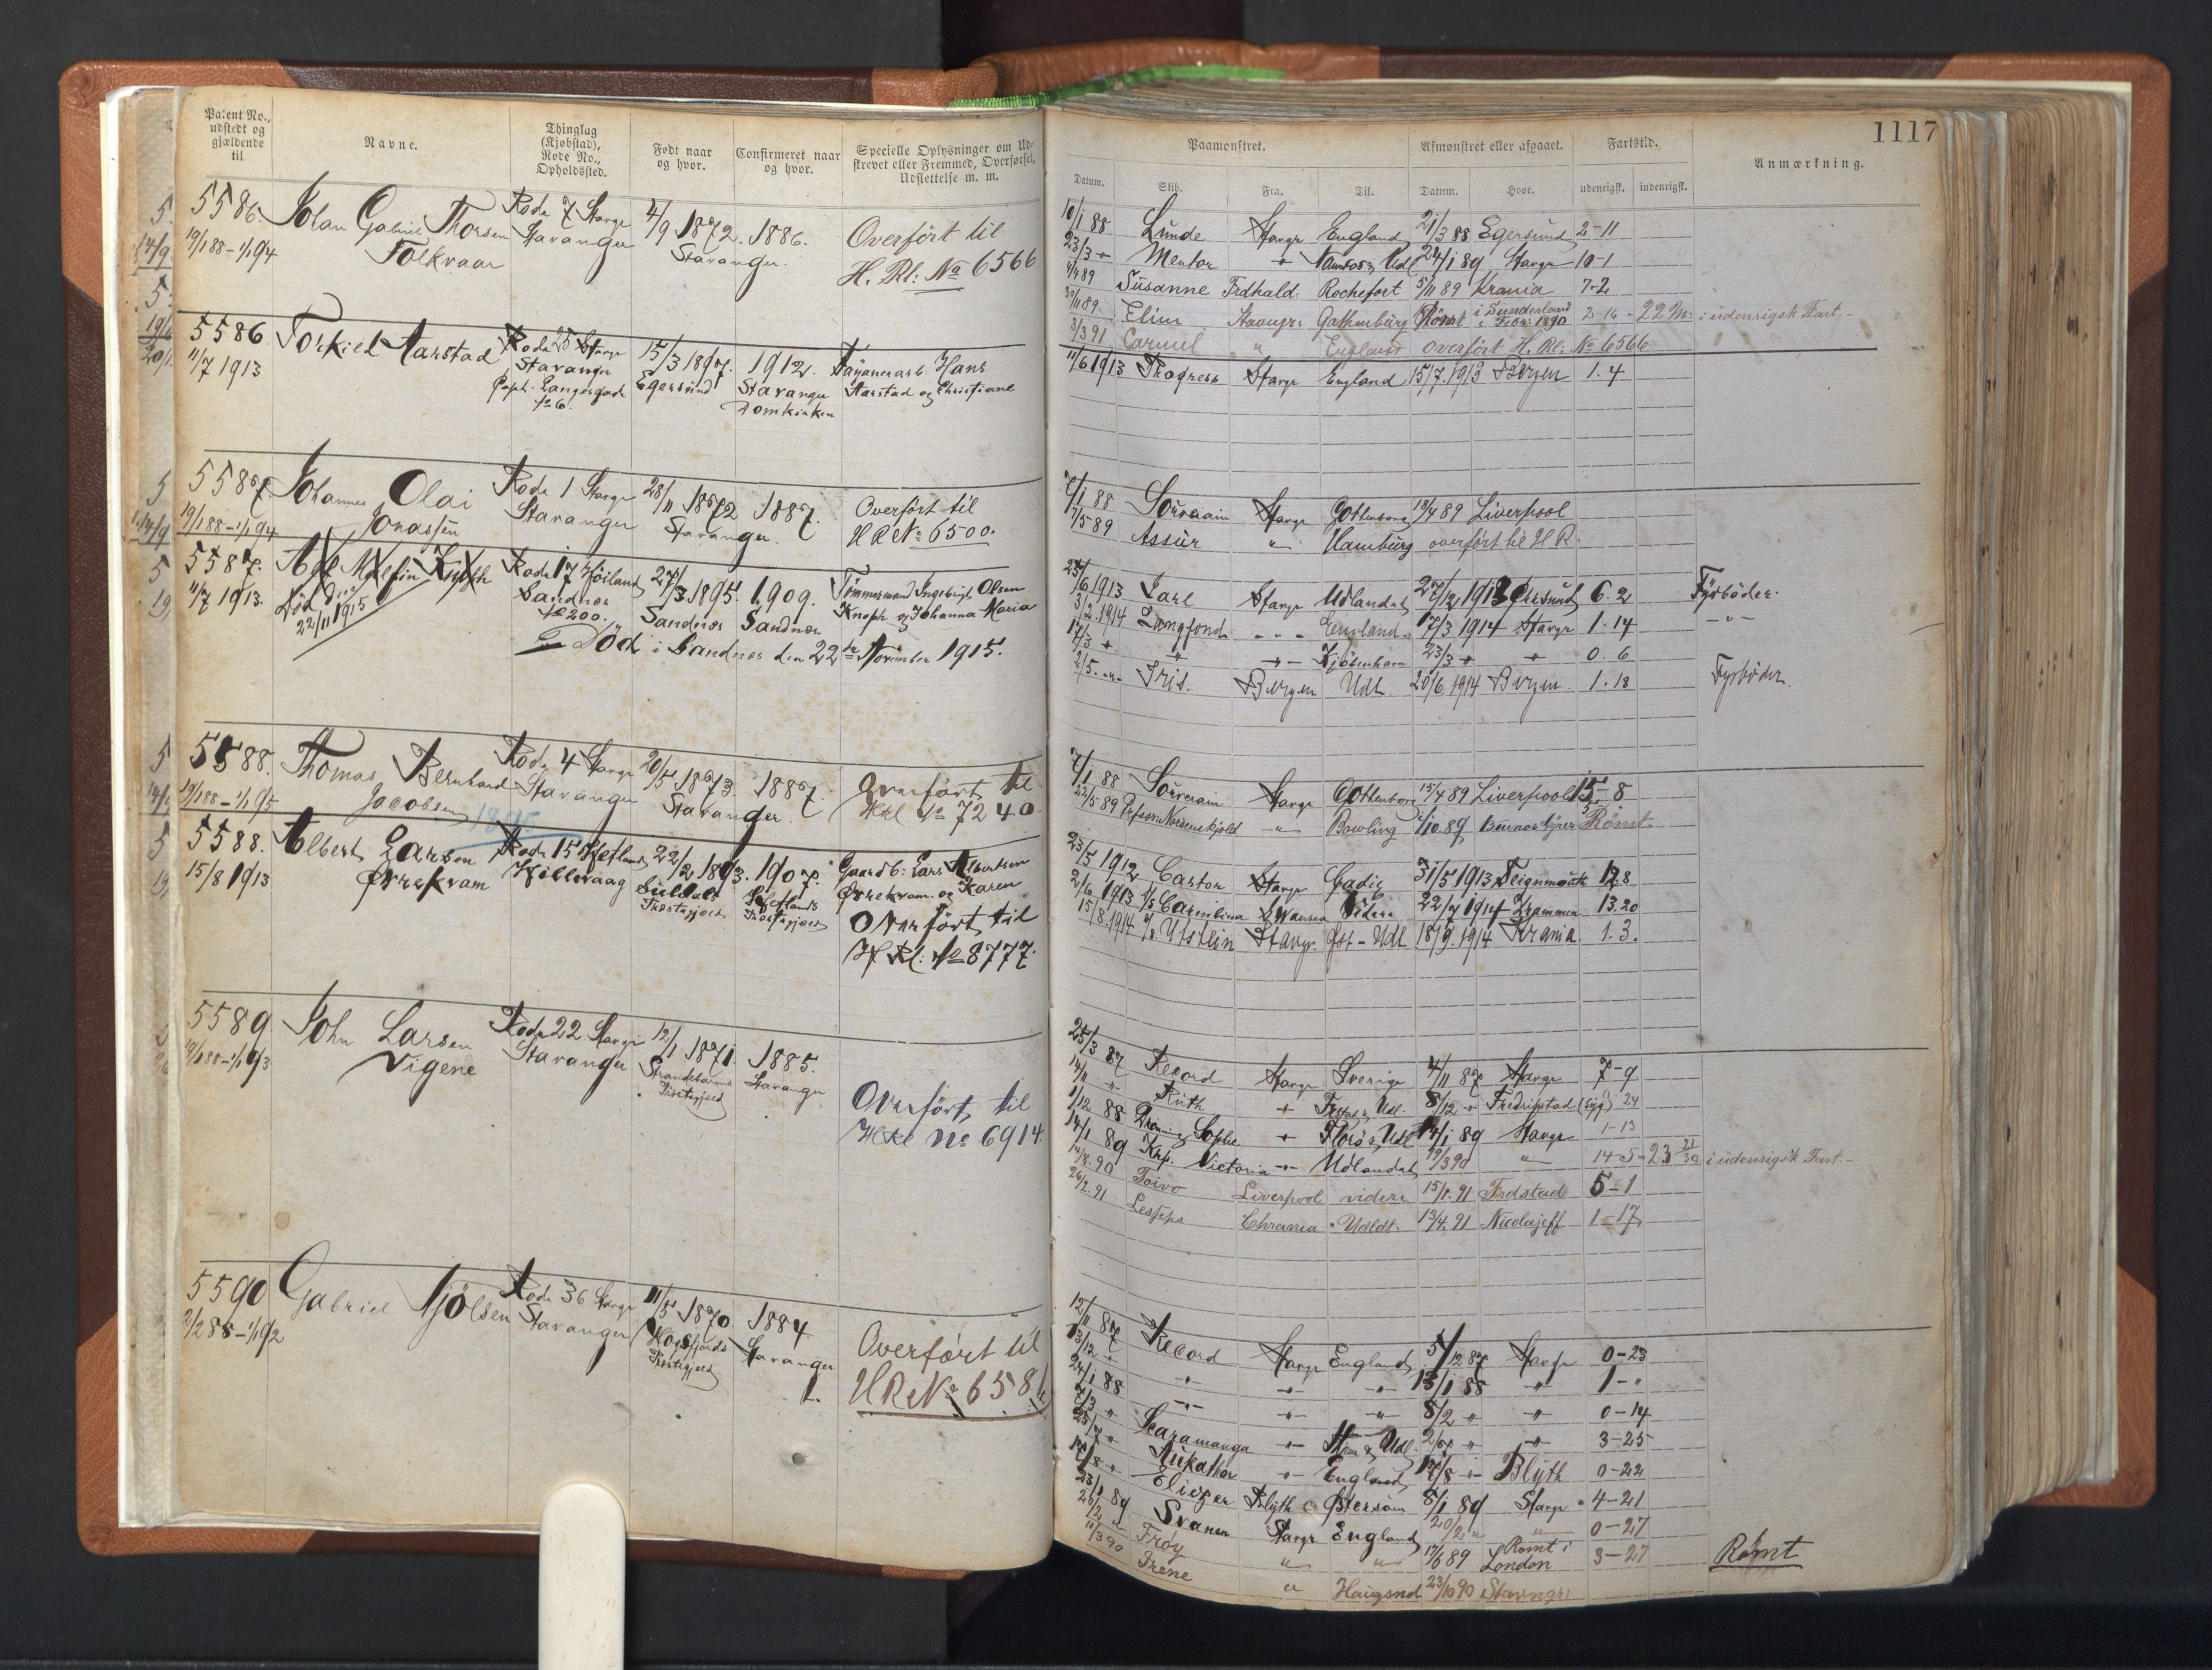 Patent No., udstedt og gjældende til
Navne.
Thinglag (Kjøbstad), Rode No., Opholdssted.
Født naar og hvor.
Confirmeret naar og hvor.
Specielle Oplysninger om Udskrevet eller Fremmed, Overførsel, Udslettelse m. m.
5586.
19/1 88 – 1/1 94
Johan Gabriel Thorsen
Folkvaar
Rode 7 Stavgr
Stavanger
4/9 1872.
Stavanger.
1886.
Overført til
H. Rl: No 6566
5586
11/7 1913
Torkild Aarstad
Rode 25 Stavgr
Stavanger
15/3 1897.
Egersund
1912.
Stavanger
Domkirken
Hans
Aarstad og Christiane
5587
19/1 88 – 1/1 94
Johannes Olai
Jonassen
Rode 1 Stavgr
Stavanger
28/11 1872
Stavanger.
1887.
Overført til
H R No 6500.
5587.
11/7 1913.
Død den
22/11 1915
Rode 17 Høiland
Sandnes
No 200.
27/3 1895.
Sandnes
1909.
Sandnes
Tømmermand Ingebrigt Olsen
Knoph og Johanna Maria
Død i Sandnes den 22de November 1915.
5588.
19/1 88 – 1/1 95
Thomas Bernhard
Jacobsen
1895
Rode 4 Stavgr
Stavanger
20/5 1873.
Stavanger.
1887.
Overført til
H Rl No 7240.
5588.
15/8 1913
Albert Larsen
Ørrekvam
Rode 15 Hetland
Hillevaag
22/2 1893.
Suldals
Præstegjæld
1907.
Hetlands
Præstegjæld
Gaardb: Lars Albertsen
Ørrekvam og Karen
Overført til
H Rl: No 8777.
5589
19/1 88 – 1/1 93
John Larsen
Vigene
Rode 22 Stavgr
Stavanger
12/1 1871.
Strandebarms
Præstegjæld
1885.
Stavanger
Overført til
H Rl No 6914.
5590
2/2 88 – 1/1 92
Gabriel Njölsen
Rode 36 Stavgr
Stavanger
11/5 1870
Høgsfjords
Præstegjæld
1884
Stavanger
Overført til
H R No 6581
1117
Paamønstret.
Afmønstret eller afgaaet.
Fartstid.
Anmærkning.
Datum. Skib. Fra. Til. Datum. Hvor. udenrigsk. indenrigsk.
10/1 88 Linde Stavgr England 21/3 88 Egersund 2-11
23/3 " Mentor " Namsos & Udl 24/1 89 Stavgr 10-1
4/4 89 Susanne Frdhald: Rochefort 5/11 89 Krania 7-2
30/11 89 Elise Stavngr: Gothenburg Rømt i Sunderland i Febr: 1890 2-16 - 22 M: i udenrigsk Fart.-
3/3 91 Carmel " England overført H. Rl: No 6566
11/6 1913 Progress Stavgr England 15/7. 1913 Bergen 1. 4
7/1 88 Souverain Stavgr Gottenborg 13/4 89 Liverpool
7/5 89 Assur " Hamburg overført til H R.
25/6 1913 Jarl Stavgr Udlandet 27/12 1913 Egersund 6. 2 Fyrbøder.
3/2. 1914 Langfond - " - England 17/3 1914 Stavgr 1. 14 - " -
17/3 " " - " - Kjøbenhavn 23/3 " " 0. 6
2/5. " Iris. Bergen Udl. 20/6. 1914 Bergen 1. 18 Fyrbøder.
7/1 88 Souverain Stavgr Gottenborg 15/4 89 Liverpool 15-8
22/5 89 Professor Nordenskjold " Bowling 1/10. 89 Buenos Ayres Rømt.
23/5 1912 Castor Stavgr Cadiz 31/5 1913 Teignmouth 12 8
2/6. 1913 S/S Carmelina Swansea Videre 22/7 1914 Drammen 13. 20
15/8. 1914 S/S Utstein Stavgr. Øst-Udl 18/9. 1914 Krania 1. 3.
25/3 87 Record Stavgr Sverige 4/11 87 Stavgr 7-9
14/11 " Ruth " Udl. 8/12 " Fredrikstad (syg) 24
1/12 88 Dronning Sophie " Florø & Udl 14/1 89 Stavgr 1-13
14/1 89 Krp. Victoria " Udlandet 19/3 90 " 14-5 - 23 21/30 i udenrigsk Fart.-
14/8. 90 Toivo Liverpool videre 15/1. 91 Frdstad 5-1
26/2. 91 Lesseps Chrania Udldt. 13/4. 91 Nicolajeff 1-17
12/11 87 Record Stavgr England 5/12 87 Stavgr 0-23
13/12 " " " " 13/1 88 " 1-"
24/1 88 " " " 8/2 " " 0-14
7/3 " Scaramanga " & Udl. 2/7 " " 3-25
25/7 " Aukathor " England 17/8 " Blyth 0-22
17/8 " Eliezer Blyth Østersøen 8/1 89 Stavgr 4-21
23/1 89 Svanen Stavgr England 20/2 " " 0-27
20/2 " Frøy " " 17/6 89 Rømt i London 3-27 Rømt
11/3 90 Irene " Haugsnd 23/10 90 Stavngr: